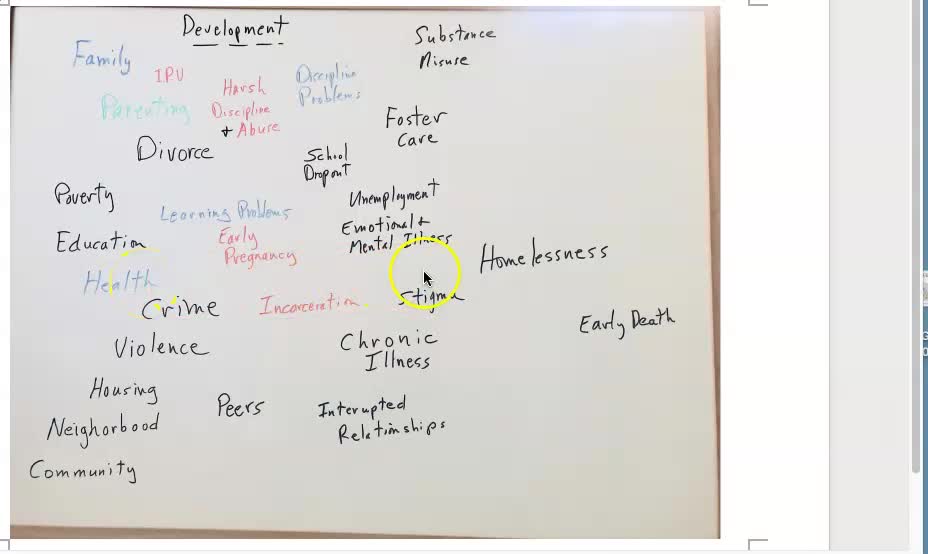 Development
Substance
Misuse
Family
I.P.V
Harsh
Discipline
+ Abuse
Discipline
Problems
Parenting
Foster
Care
Divorce
School
Dropout
Poverty
Unemployment
Learning Problems
Emotional +
Mental Illness
Education
Early
Pregnancy
Homelessness
Health
Crime
Incarceration
Stigma
Early Death
Violence
Chronic
Illness
Housing
Peers
Interupted
Relationships
Neighorbood
Community